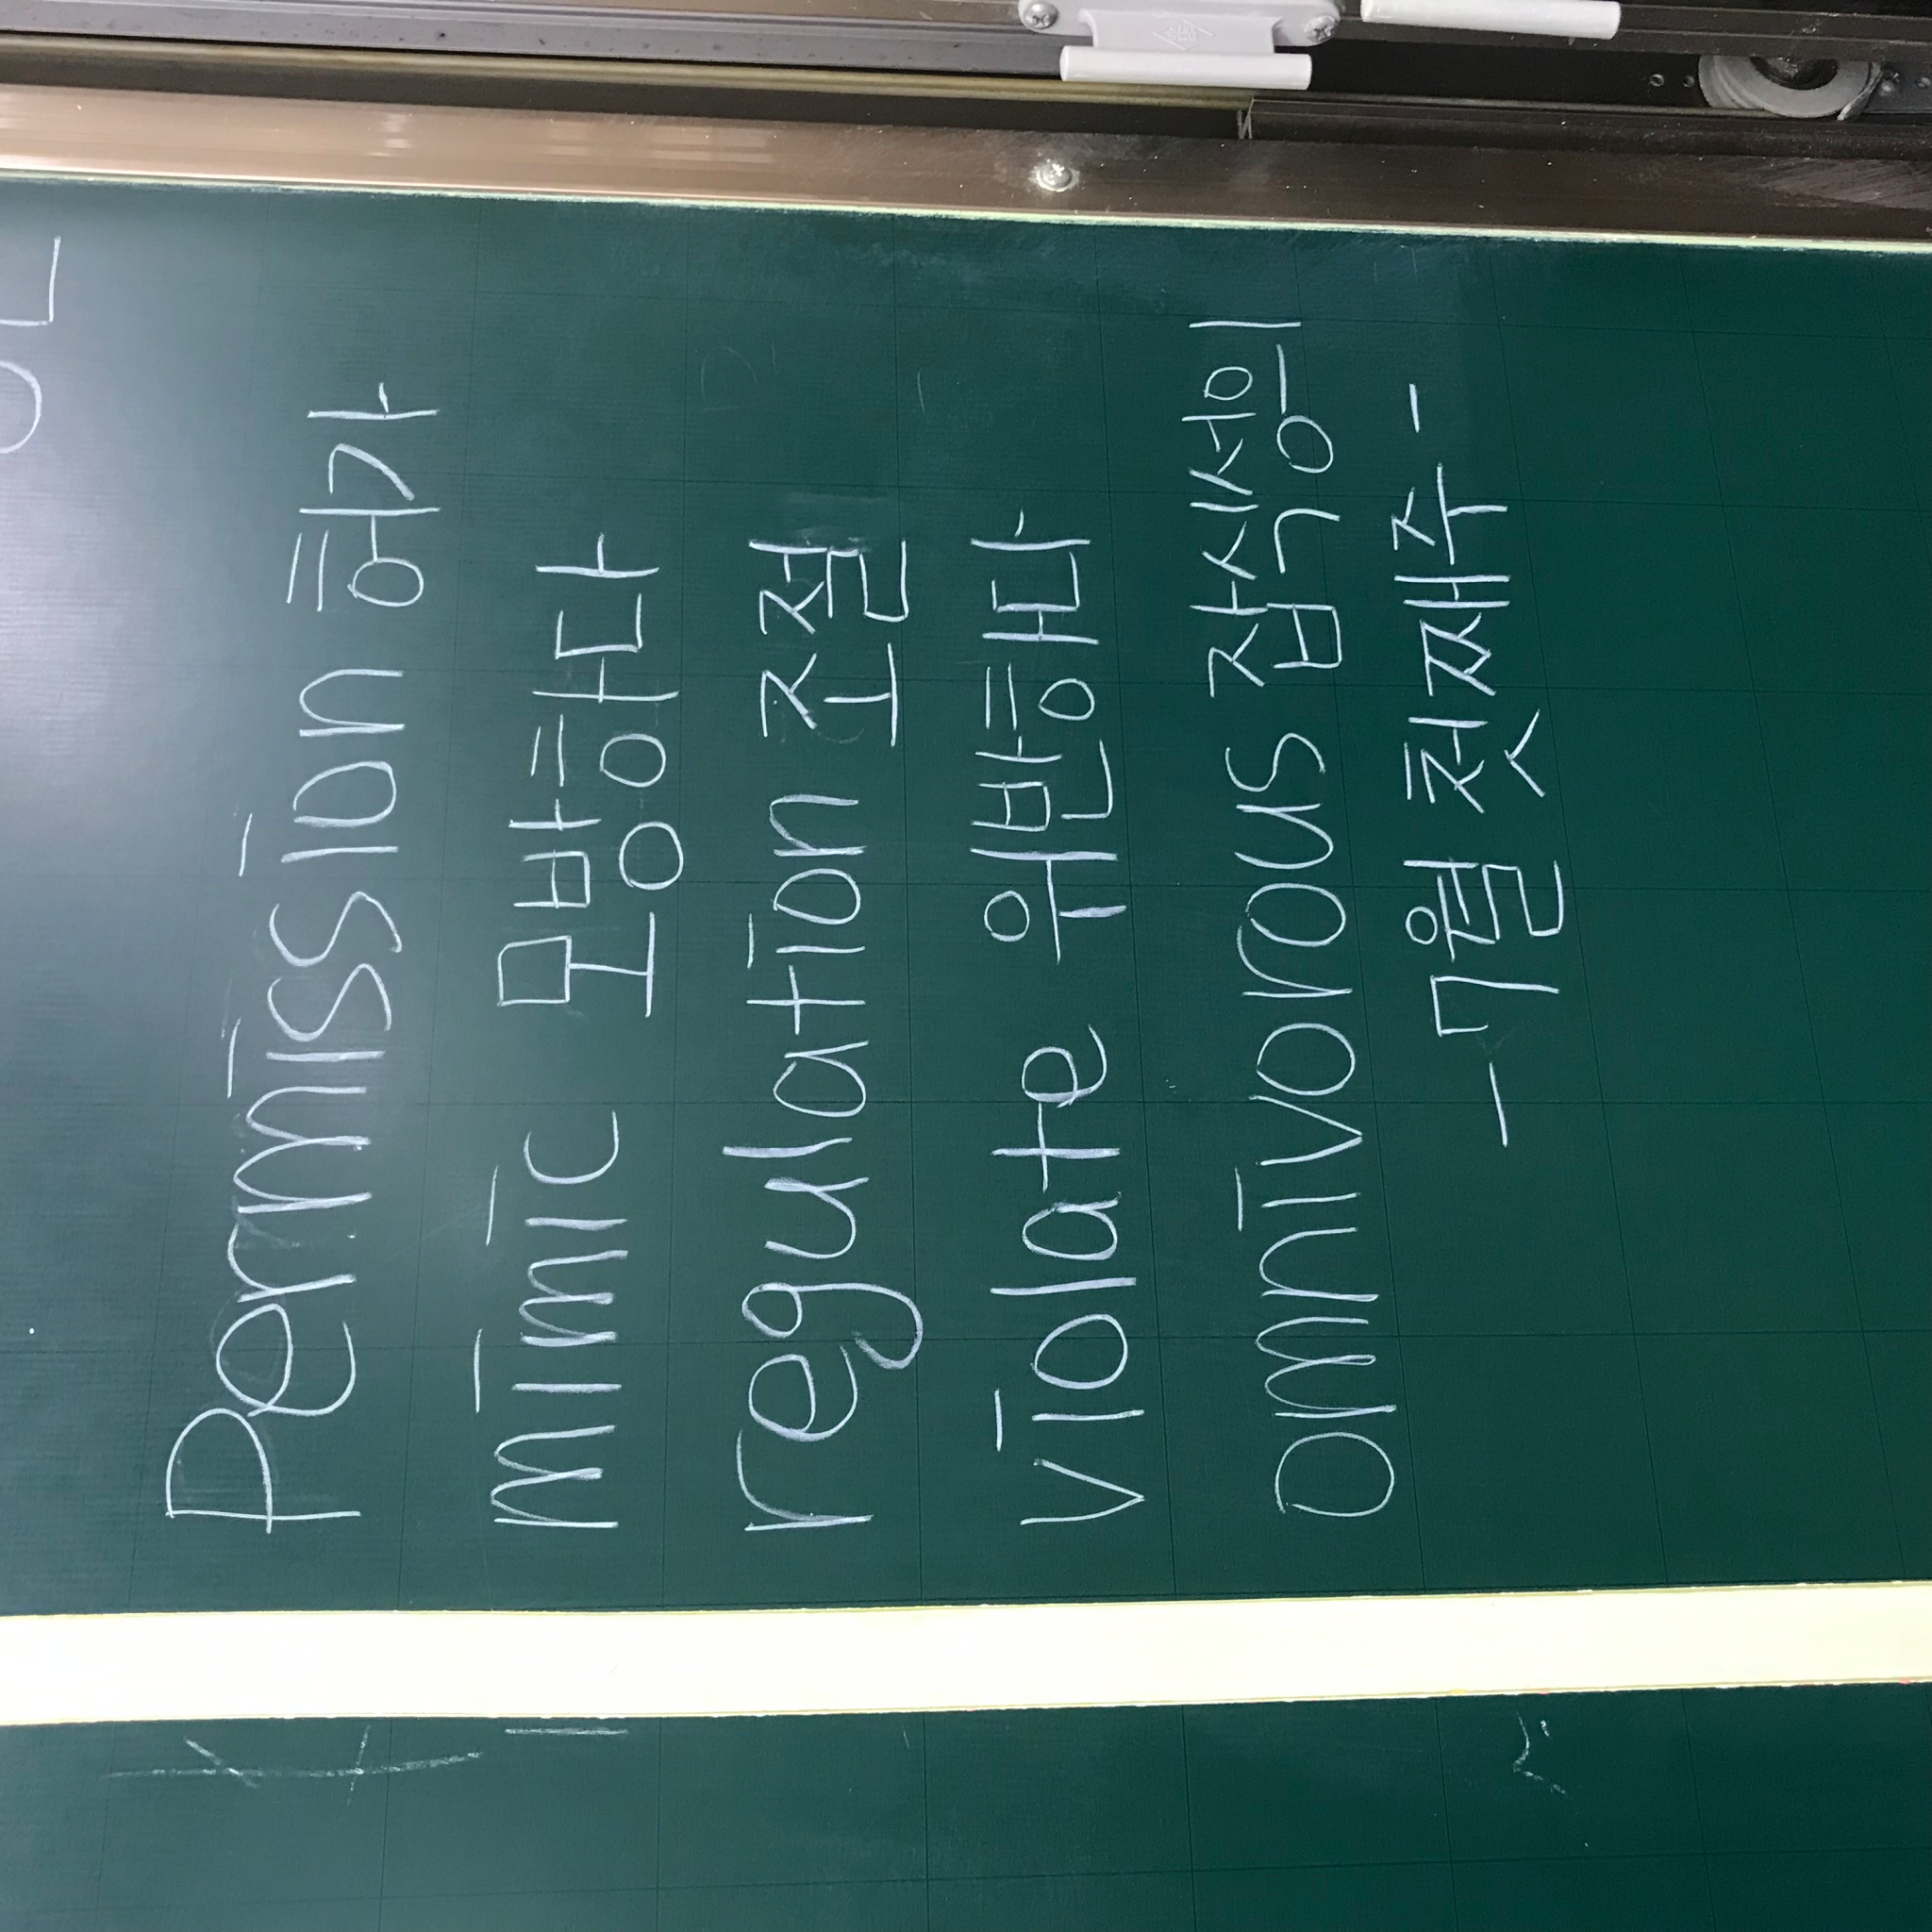 Permission 허가
mimic 모방하다
regulation 조절
violate 위반하다
omnivorous 잡식성의
- 7월 첫째주 -